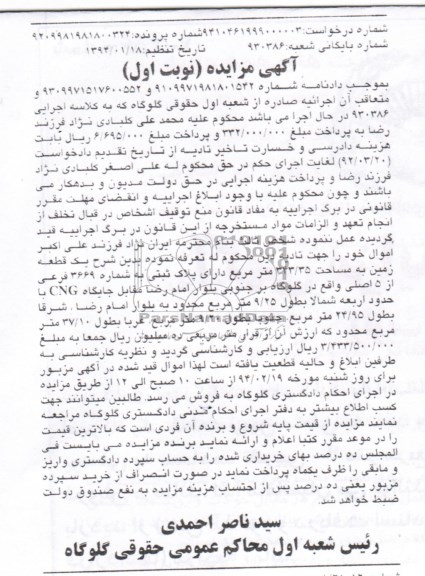 شماره درخواست: ۹۴۱۰۴۶۱۹۹۹۰۰۰۰۰۳ شماره پرونده: ۹۲۰۹۹۸۱۹۸۱۸۰۰۳۲۴
شماره بایگانی شعبه: ۹۳۰۳۸۶ تاریخ تنظیم: ۱۳۹۴/۰۱/۱۸
آگهی مزایده (نوبت اول)
بموجب دادنامه شماره ۹۱۰۹۹۷۱۹۸۱۸۰۱۵۴۲ و ۹۳۰۹۹۷۱۵۱۷۶۰۰۵۵۲ و
متعاقب آن اجرائیه صادره از شعبه اول حقوقی گلوگاه که به کلاسه اجرایی
۹۳۰۳۸۶ در حال اجرا می باشد محکوم علیه محمد علی کلبادی نژاد فرزند
رضا به پرداخت مبلغ ۳۳۲/۰۰۰/۰۰۰ و پرداخت مبلغ ۶/۶۹۵/۰۰۰ ریال بابت
هزینه دادرسی و خسارت تاخیر تادیه از تاریخ تقدیم دادخواست
(۹۲/۰۳/۲۰) لغایت اجرای حکم در حق محکوم له علی اصغر کلبادی نژاد
فرزند رضا و پرداخت هزینه اجرایی در حق دولت مدیون و بدهکار می
باشند و چون محکوم علیه با وجود ابلاغ اجراییه و انقضای مهلت مقرر
قانونی در برگ اجراییه به مفاد قانون منع توقیف اشخاص در قبال تخلف از
انجام تعهد و الزامات مواد مستخرجه از این قانون در برگ اجراییه قید
گردیده عمل ننموده شخص ثالث بنام محترمه ایران نژاد فرزند علی اکبر
اموال خود را جهت تادیه دین محکوم له تعرفه نموده بدین شرح یک قطعه
زمین به مساحت ۳۴۳/۳۵ متر مربع دارای پلاک ثبتی به شماره ۳۶۶۹ فرعی
از ۵ اصلی واقع در گلوگاه بر جنوبی بلوار امام رضا مقابل جایگاه CNG با
حدود اربعه شمالا بطول ۹/۲۵ متر مربع محدود به بلوار امام رضا. شرقا
بطول ۲۴/۹۵ متر مربع جنوبا بطول متر مربع غربا بطول ۳۷/۱۰ متر
مربع محدود که ارزش آن از قرار متر مربعی ده میلیون ریال جمعا به مبلغ
۳/۴۳۳/۵۰۰/۰۰۰ ریال ارزیابی و کارشناسی گردید و نظریه کارشناسی به
طرفین ابلاغ و حالیه قطعیت یافته است لهذا اموال قید شده در آگهی مزبور
برای روز شنبه مورخه ۹۴/۰۲/۱۹ از ساعت ۱۰ صبح الی ۱۲ از طریق مزایده
در اجرای احکام دادگستری گلوگاه به فروش می رسد. طالبین میتوانند جهت
کسب اطلاع بیشتر به دفتر اجرای احکام مدنی دادگستری گلوگاه مراجعه
نمایند مزایده از قیمت پایه شروع و برنده آن فردی است که بالاترین قیمت
را در موعد مقرر کتبا اعلام و ارائه نماید برنده مزایده می بایست فی
المجلس ده درصد بهای خریداری شده را به حساب سپرده دادگستری واریز
و مابقی را ظرف یکماه پرداخت نماید در صورت انصراف از خرید سپرده
مزبور یعنی ده درصد پس از احتساب هزینه مزایده به نفع صندوق دولت
ضبط خواهد شد.
سید ناصر احمدی
رئیس شعبه اول محاکم عمومی حقوقی گلوگاه